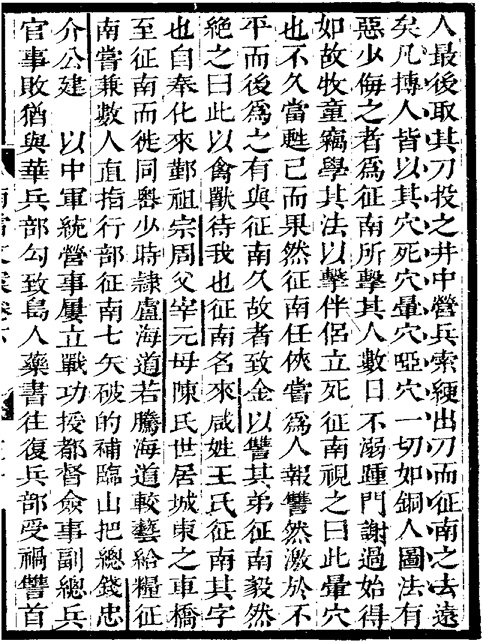 人最後取其刀投之井中營兵索綆出刀而征南之去遠
矣凡搏人皆以其穴死穴暈穴啞穴一切如銅人圖法有
惡少侮之者爲征南所擊其人數日不溺踵門謝過始得
如故牧童竊學其法以擊伴侶立死征南視之曰此暈穴
也不久當甦已而果然征南任俠嘗爲人報讐然激於不
平而後爲之有與征南久故者致金以讐其弟征南毅然
絶之曰此以禽獸待我也征南名來咸姓王氏征南其字
也自奉化來鄞祖宗周父宰元母陳氏世居城東之車橋
至征南而徙同嶴少時隸盧海道若騰海道較藝給糧征
南嘗兼數人直指行部征南七矢破的補臨山把總錢忠
介公建　以中軍統營事屢立戰功授都督僉事副總兵
官事敗猶與華兵部勾致島人藥書往復兵部受禍讐首